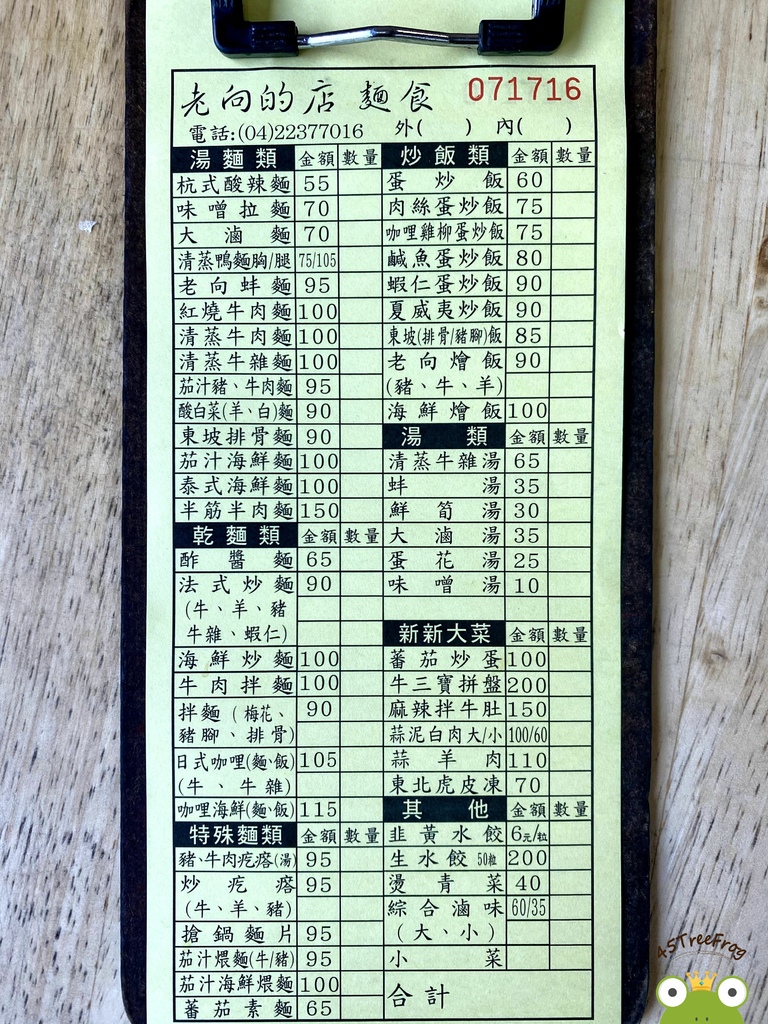 老向的店 麵食 071716
電話:(04)22377016 外( ) 內( )
湯麵類 金額 數量
杭式酸辣麵 55
味噌拉麵 70
大滷麵 70
清蒸鴨麵胸/腿 75/105
老向蚌麵 95
紅燒牛肉麵 100
清蒸牛肉麵 100
清蒸牛雜麵 100
茄汁豬、牛肉麵 95
酸白菜(羊、白)麵 90
東坡排骨麵 90
茄汁海鮮麵 100
泰式海鮮麵 100
半筋半肉麵 150
乾麵類 金額 數量
酢醬麵 65
法式炒麵 90
(牛、羊、豬
牛雜、蝦仁)
海鮮炒麵 100
牛肉拌麵 100
拌麵(梅花、 90
豬腳、排骨)
日式咖哩(麵、飯) 105
(牛、牛雜)
咖哩海鮮(麵、飯) 115
特殊麵類 金額 數量
豬、牛肉疙瘩(湯) 95
炒疙瘩 95
(牛、羊、豬)
搶鍋麵片 95
茄汁煨麵(牛/豬) 95
茄汁海鮮煨麵 100
蕃茄素麵 65
炒飯類 金額 數量
蛋炒飯 60
肉絲蛋炒飯 75
咖哩雞柳蛋炒飯 75
鹹魚蛋炒飯 80
蝦仁蛋炒飯 90
夏威夷炒飯 90
東坡(排骨/豬腳)飯 85
老向燴飯 90
(豬、牛、羊)
海鮮燴飯 100
湯類 金額 數量
清蒸牛雜湯 65
蚌湯 35
鮮筍湯 30
大滷湯 35
蛋花湯 25
味噌湯 10
新新大菜 金額 數量
蕃茄炒蛋 100
牛三寶拼盤 200
麻辣拌牛肚 150
蒜泥白肉大/小 100/60
蒜羊肉 110
東北虎皮凍 70
其他 金額 數量
韭黃水餃 6元/粒
生水餃 50粒 200
燙青菜 40
綜合滷味 60/35
(大、小)
小菜
合計
45TreeFrog